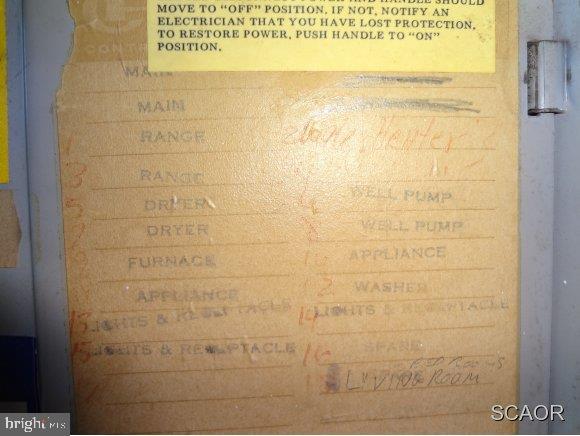 MOVE TO “OFF” POSITION. IF NOT, NOTIFY AN
ELECTRICIAN THAT YOU HAVE LOST PROTECTION.
TO RESTORE POWER, PUSH HANDLE TO “ON”
POSITION.
MAIN
MAIN
1 RANGE Heater
3 RANGE
5 DRYER WELL PUMP
DRYER 8 WELL PUMP
FURNACE 10 APPLIANCE
APPLIANCE 12 WASHER
13 LIGHTS & RECEPTACLE 14 LIGHTS & RECEPTACLE
15 LIGHTS & RECEPTACLE 16 SPARE
BED ROOMS
LIVING ROOM
SCAOR
bright MLS